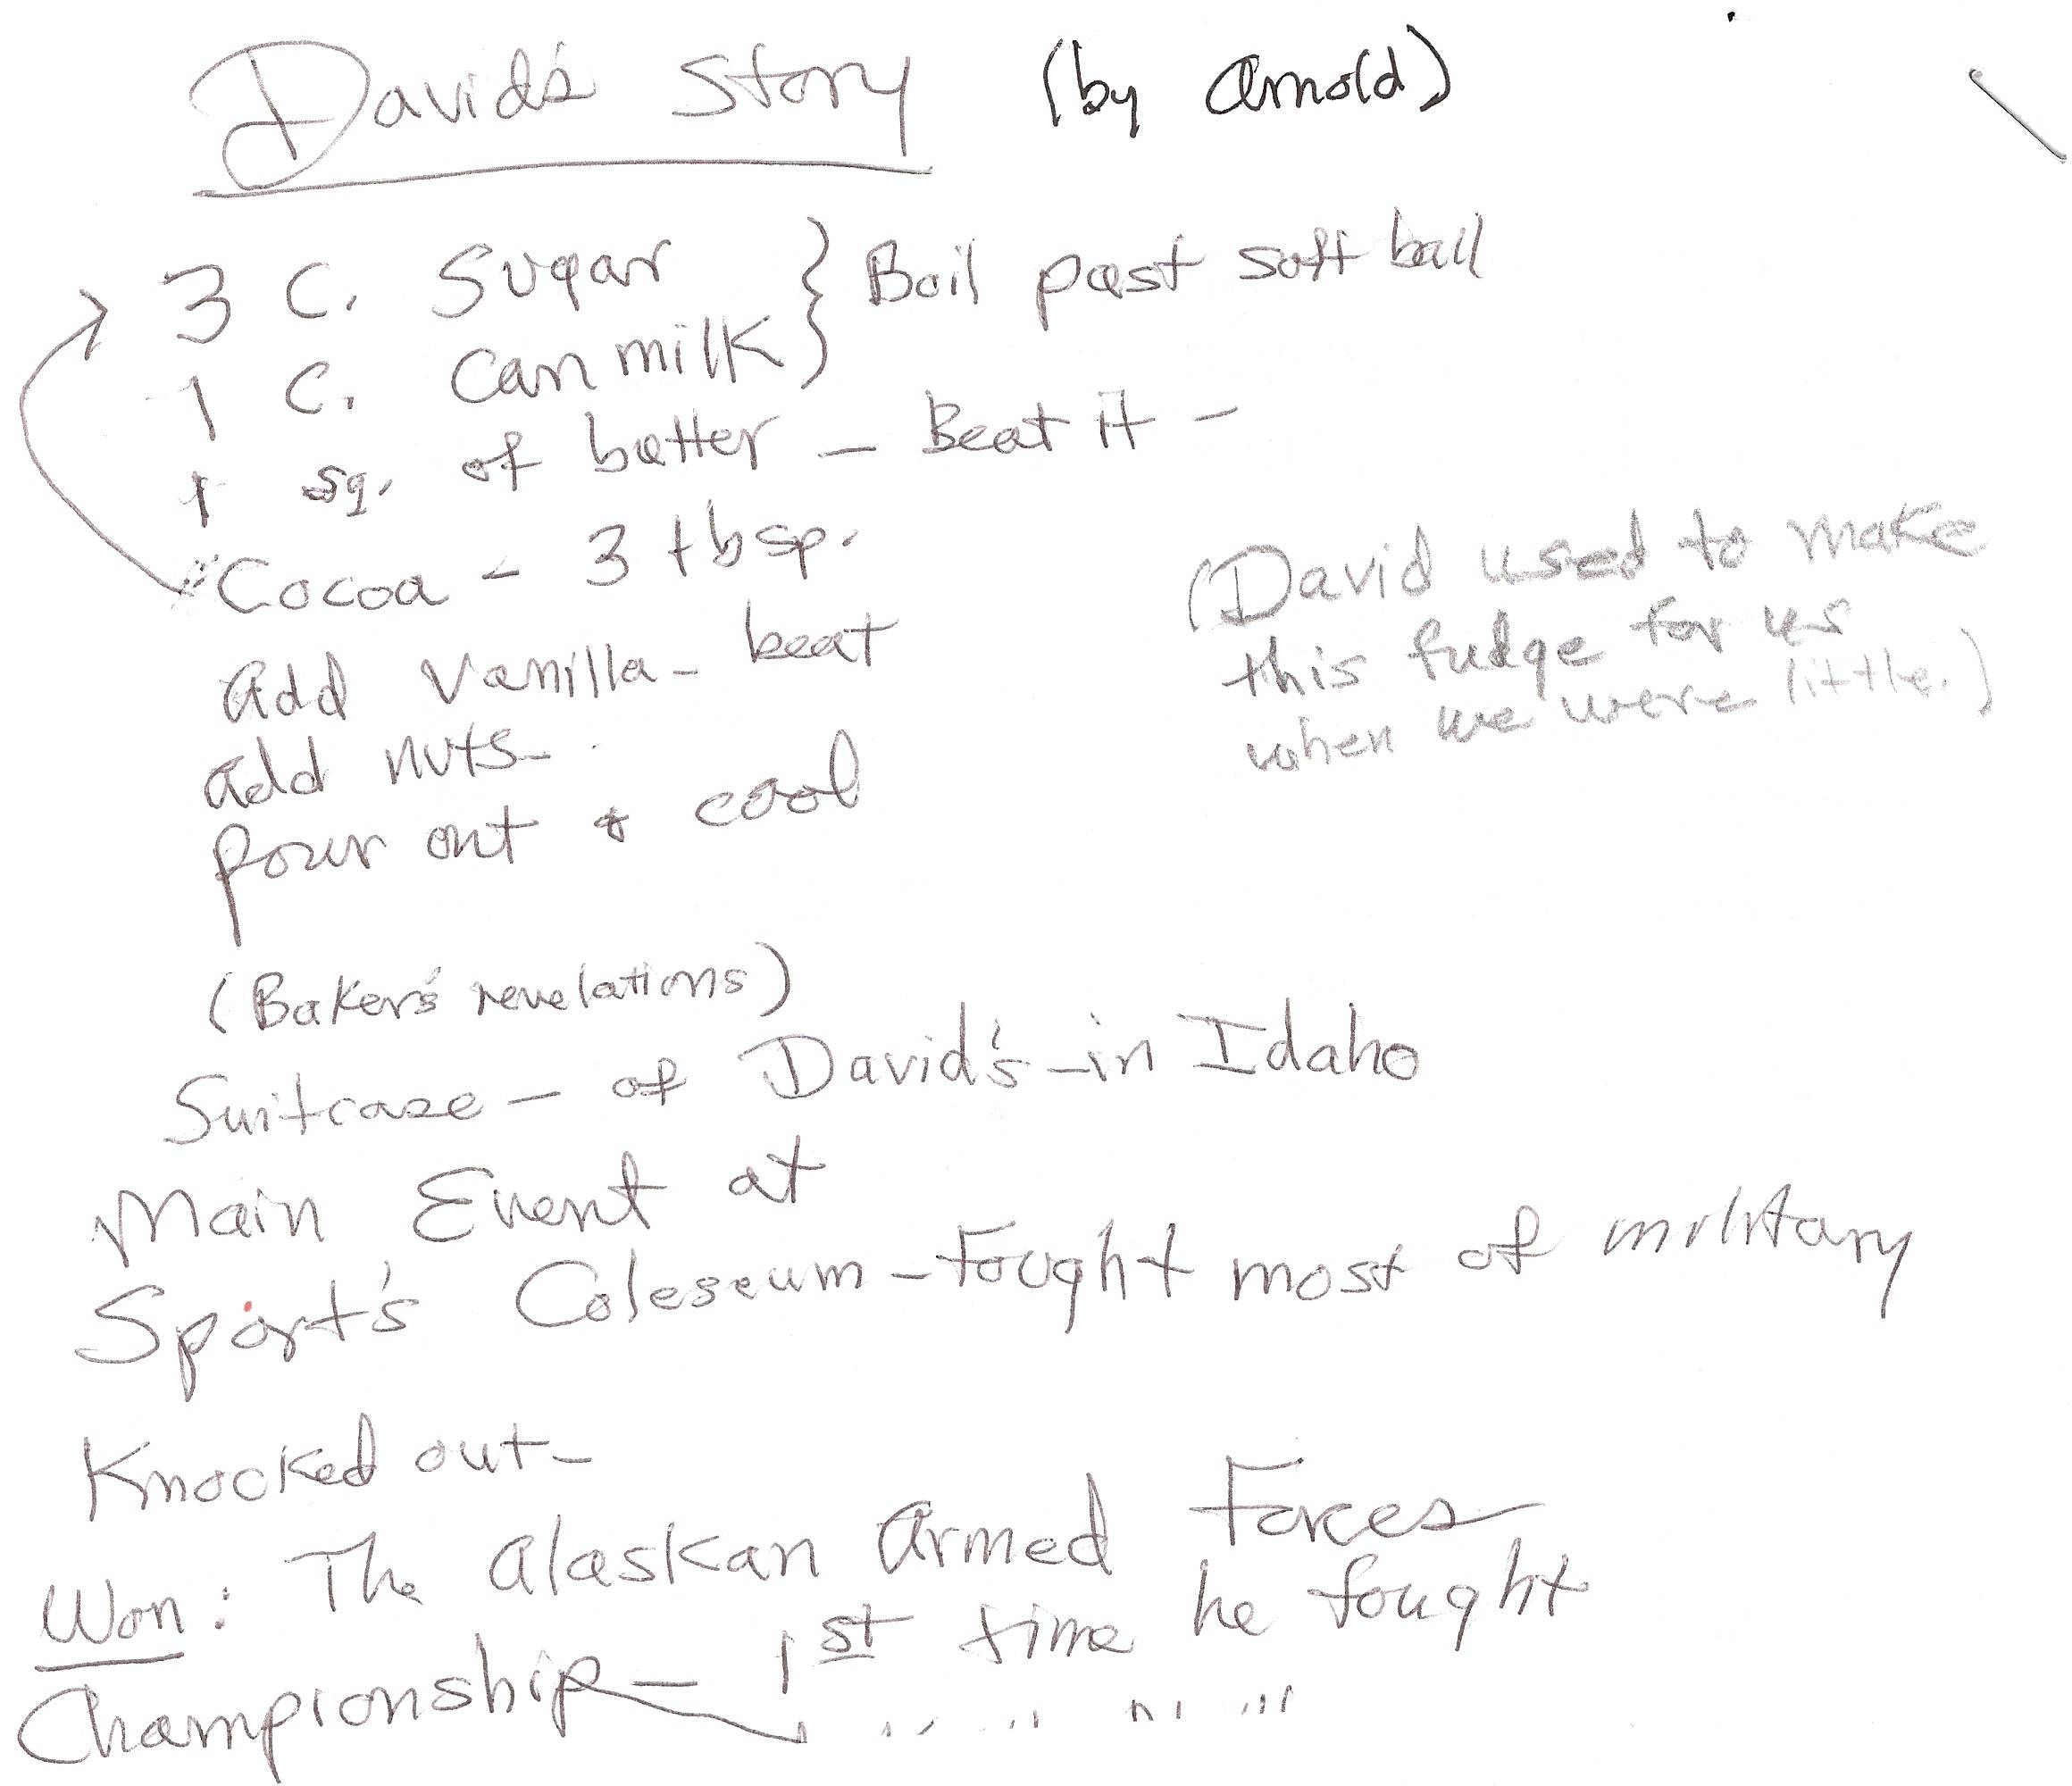 David's Story (by Arnold)
3 C. Sugar } Boil past soft ball
1 C. Can milk
1 sq. of butter - Beat it -
Cocoa - 3 tbsp.
Add Vanilla - beat
add nuts -
pour out & cool
(David used to make
this fudge for us
when we were little.)
(Baker's revelations)
Suitcase - of David's - in Idaho
Main Event at
Sport's Coleseum - Fought most of military
Knocked out -
Won: The Alaskan Armed Forces
Championship - 1st time he fought